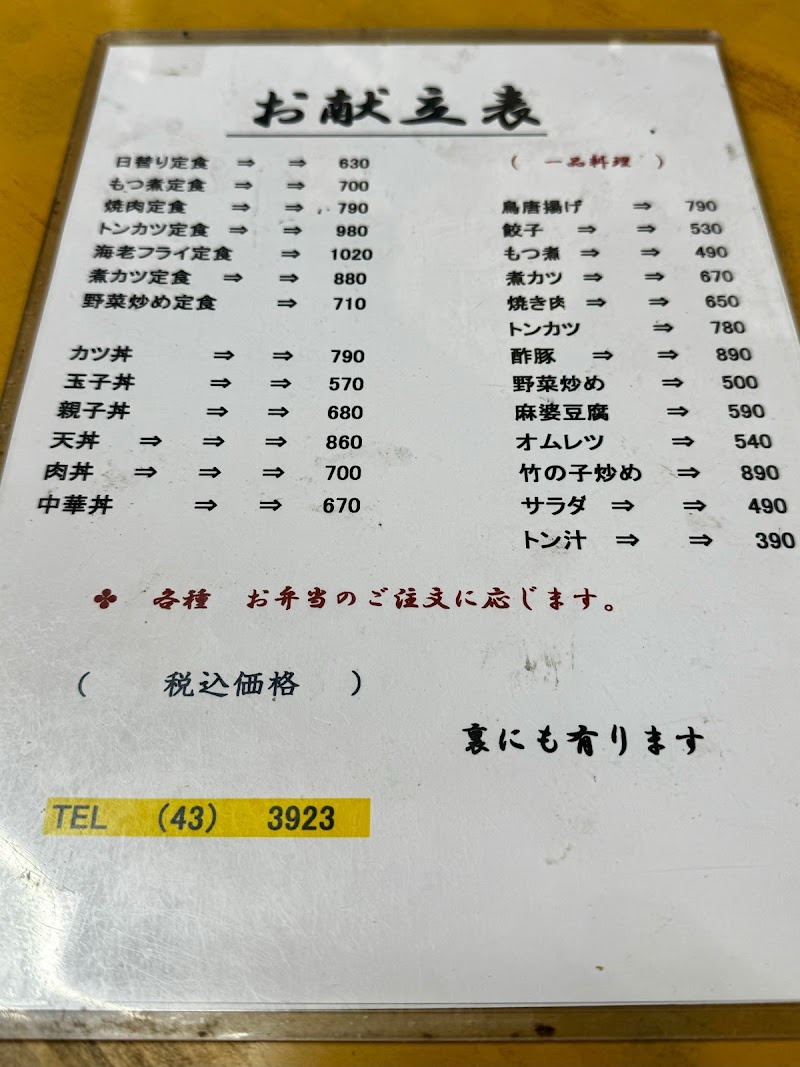 お献立表
日替り定食 ⇒ ⇒ 630
もつ煮定食 ⇒ ⇒ 700
焼肉定食 ⇒ ⇒ 790
トンカツ定食 ⇒ ⇒ 980
海老フライ定食 ⇒ 1020
煮カツ定食 ⇒ ⇒ 880
野菜炒め定食 ⇒ 710
カツ丼 ⇒ ⇒ 790
玉子丼 ⇒ ⇒ 570
親子丼 ⇒ ⇒ 680
天丼 ⇒ ⇒ ⇒ 860
肉丼 ⇒ ⇒ ⇒ 700
中華丼 ⇒ ⇒ 670
( 一品料理 )
鳥唐揚げ ⇒ 790
餃子 ⇒ ⇒ 530
もつ煮 ⇒ ⇒ 490
煮カツ ⇒ ⇒ 670
焼き肉 ⇒ ⇒ 650
トンカツ ⇒ 780
酢豚 ⇒ ⇒ 890
野菜炒め ⇒ 500
麻婆豆腐 ⇒ 590
オムレツ ⇒ 540
竹の子炒め ⇒ 890
サラダ ⇒ ⇒ 490
トン汁 ⇒ ⇒ 390
✤ 各種 お弁当のご注文に応じます。
( 税込価格 )
裏にも有ります
TEL (43) 3923